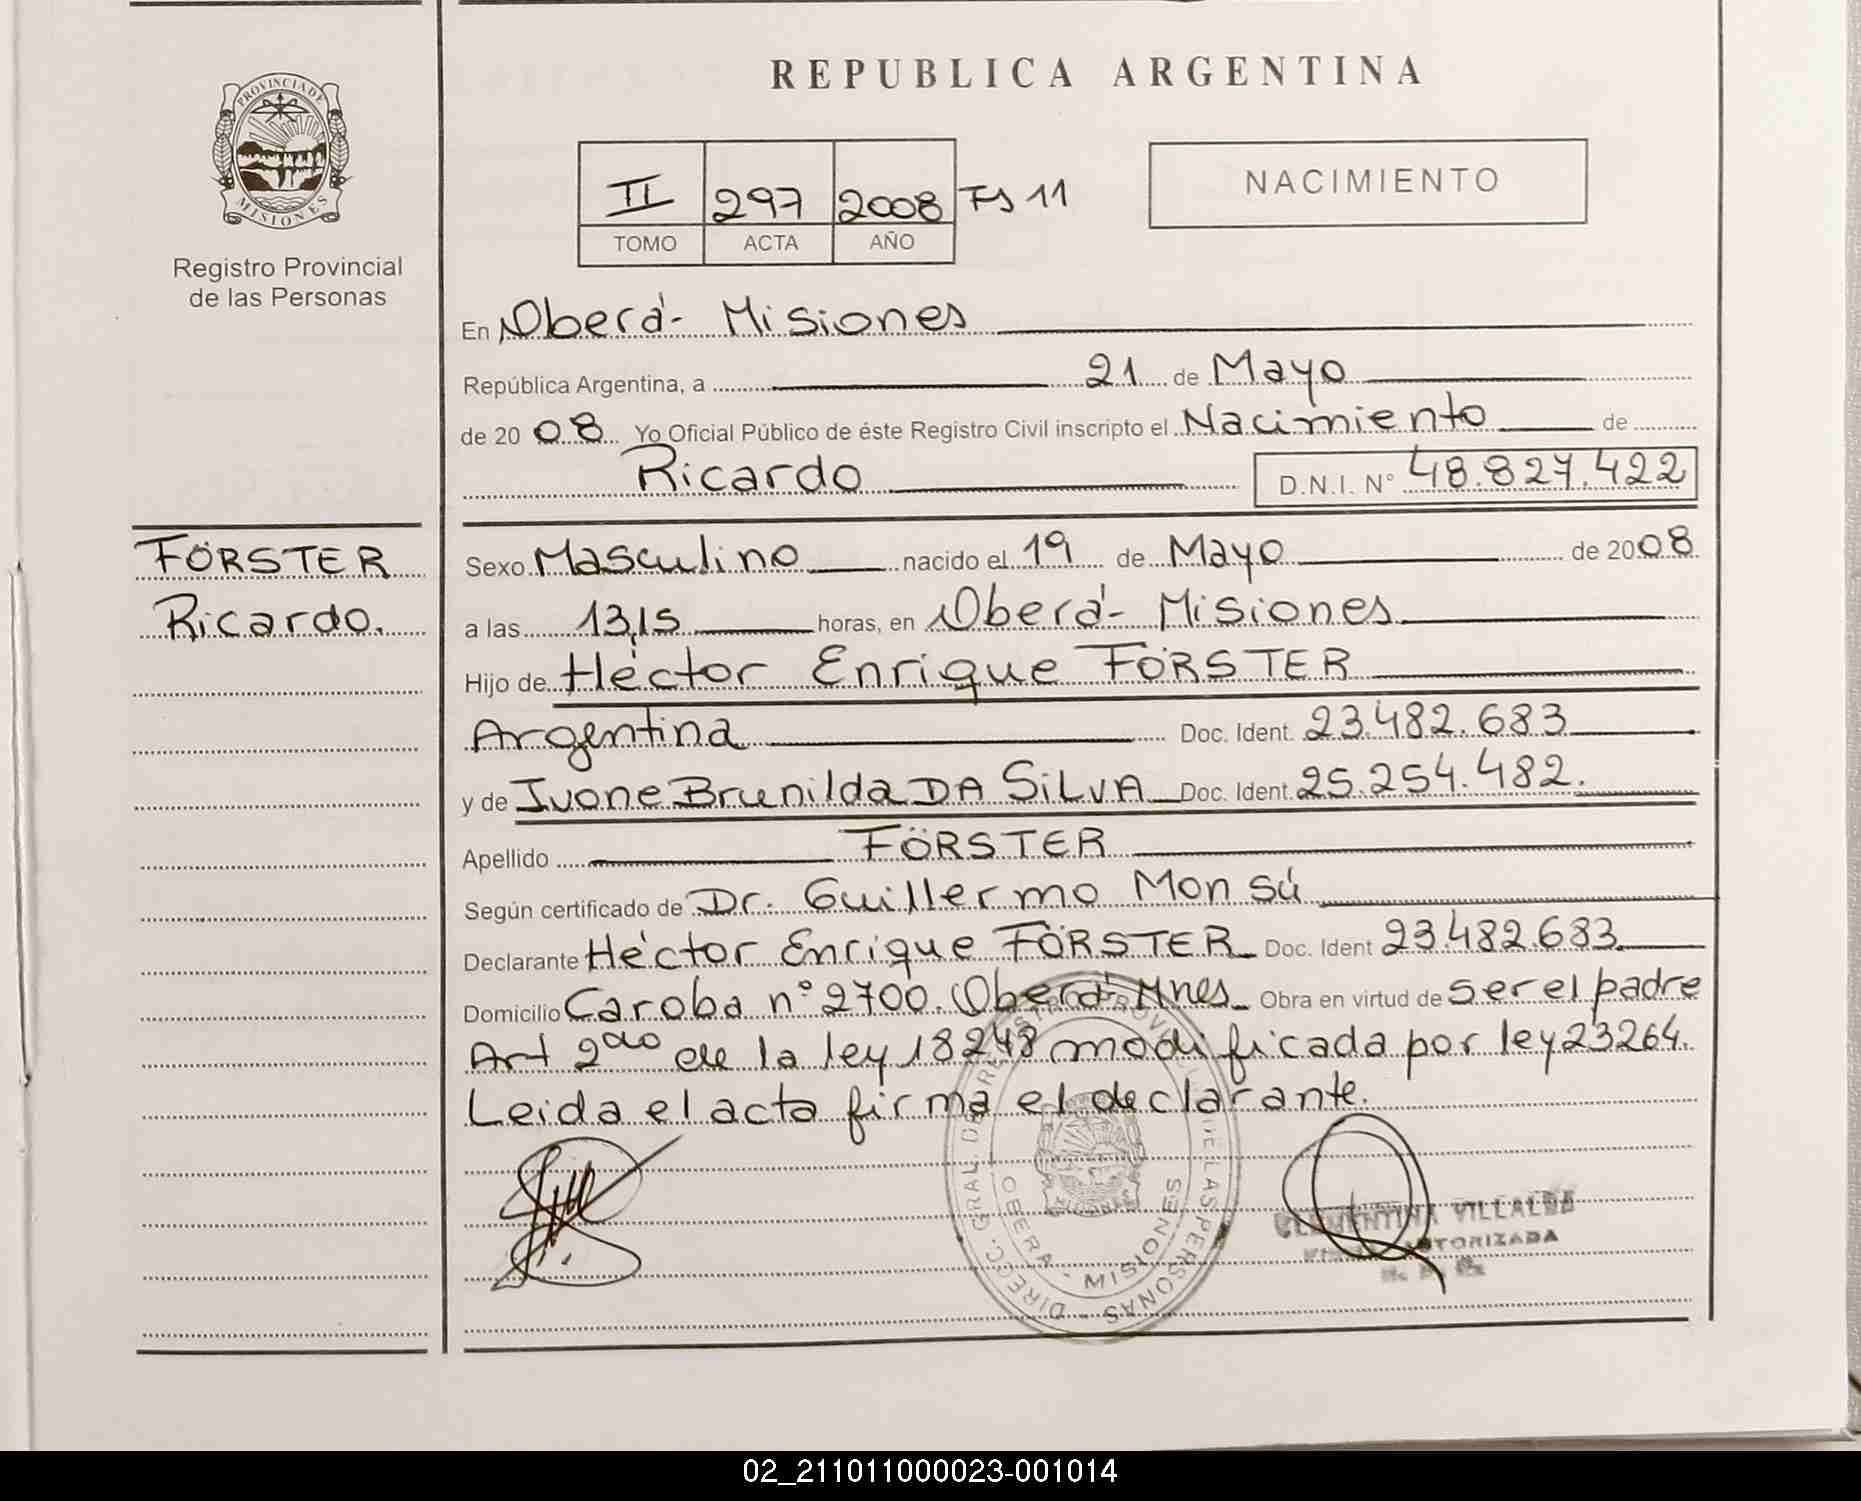 REPUBLICA ARGENTINA
PROVINCIA DE MISIONES
Registro Provincial
de las Personas
II 297 2008 Fs 11
TOMO ACTA AÑO
NACIMIENTO
En Oberá- Misiones
República Argentina, a 21 de Mayo
de 20 08 Yo Oficial Público de éste Registro Civil inscripto el Nacimiento de
Ricardo D.N.I. N° 48.827.422
FÖRSTER
Ricardo.
Sexo Masculino nacido el 19 de Mayo de 2008
a las 13,15 horas, en Oberá- Misiones
Hijo de Héctor Enrique FÖRSTER
Argentina Doc. Ident. 23.482.683
y de Ivone Brunilda DA SiLVA Doc. Ident. 25.254.482.
Apellido FÖRSTER
Según certificado de Dr. Guillermo Monsú
Declarante Héctor Enrique FÖRSTER Doc. Ident 23.482.683
Domicilio Caroba n° 2700. Oberá Mnes Obra en virtud de ser el padre
Art 2do de la ley 18248 modificada por ley 23264.
Leida el acta firma el declarante.
DIRECC. GRAL. DE REGISTRO PROVINCIAL DE LAS PERSONAS
OBERA - MISIONES
CLEMENTINA VILLALBA
AUTORIZADA
02_211011000023-001014